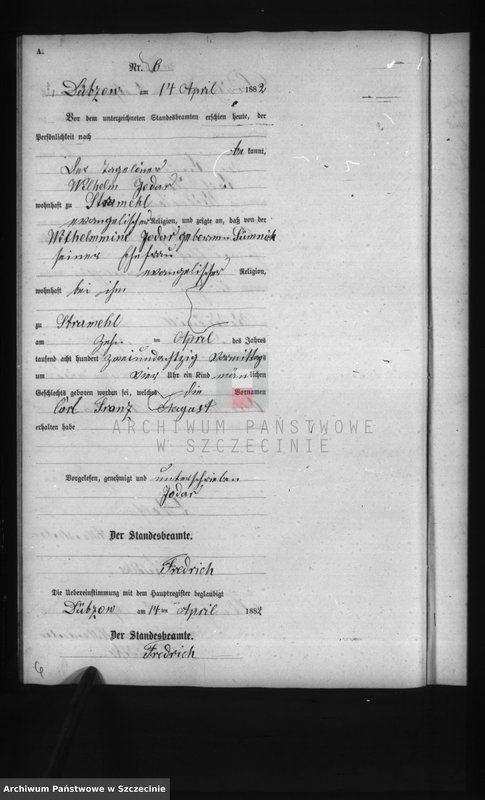 A.
Nr. 6
Dübzow am 14 April 1882
Vor dem unterzeichneten Standesbeamten erschien heute, der
Persönlichkeit nach
be kannt,
der Tagelöner
Wilhelm Jodar
wohnhaft zu Stramehl
evangelischer Religion, und zeigte an, daß von der
Wilhelmmine Jodar geborenen
seiner Ehefrau
evangelischer Religion,
wohnhaft bei ihm
zu Stramehl
am Zehn ten April des Jahres
tausend acht hundert zweiundachtzig Vormittags
um vier Uhr ein Kind männlichen
Geschlechts geboren worden sei, welches die Vornamen
Carl Franz August
erhalten habe
ARCHIWUM PAŃSTWOWE
W SZCZECINIE
Vorgelesen, genehmigt und unterschrieben
Jodar
Der Standesbeamte.
Fredrich
Die Uebereinstimmung mit dem Hauptregister beglaubigt
Dübzow am 14 ten April 1882
Der Standesbeamte.
Fredrich
6
Archiwum Państwowe w Szczecinie